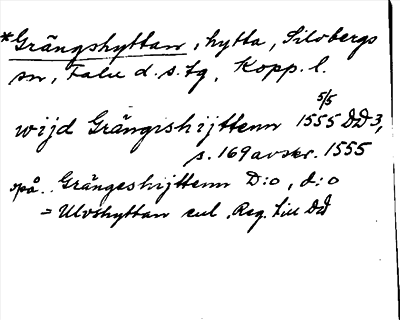 *Grängshyttan, hytta, Silvbergs
sn, Falu d.s. tg, Kopp. l.
wijd Grängishijttenn 1555 5/5 DD 3,
s. 169 avskr. 1555
på.. Grängeshijttenn D:o, d:o
= Ulvshyttan enl. Reg. till DD